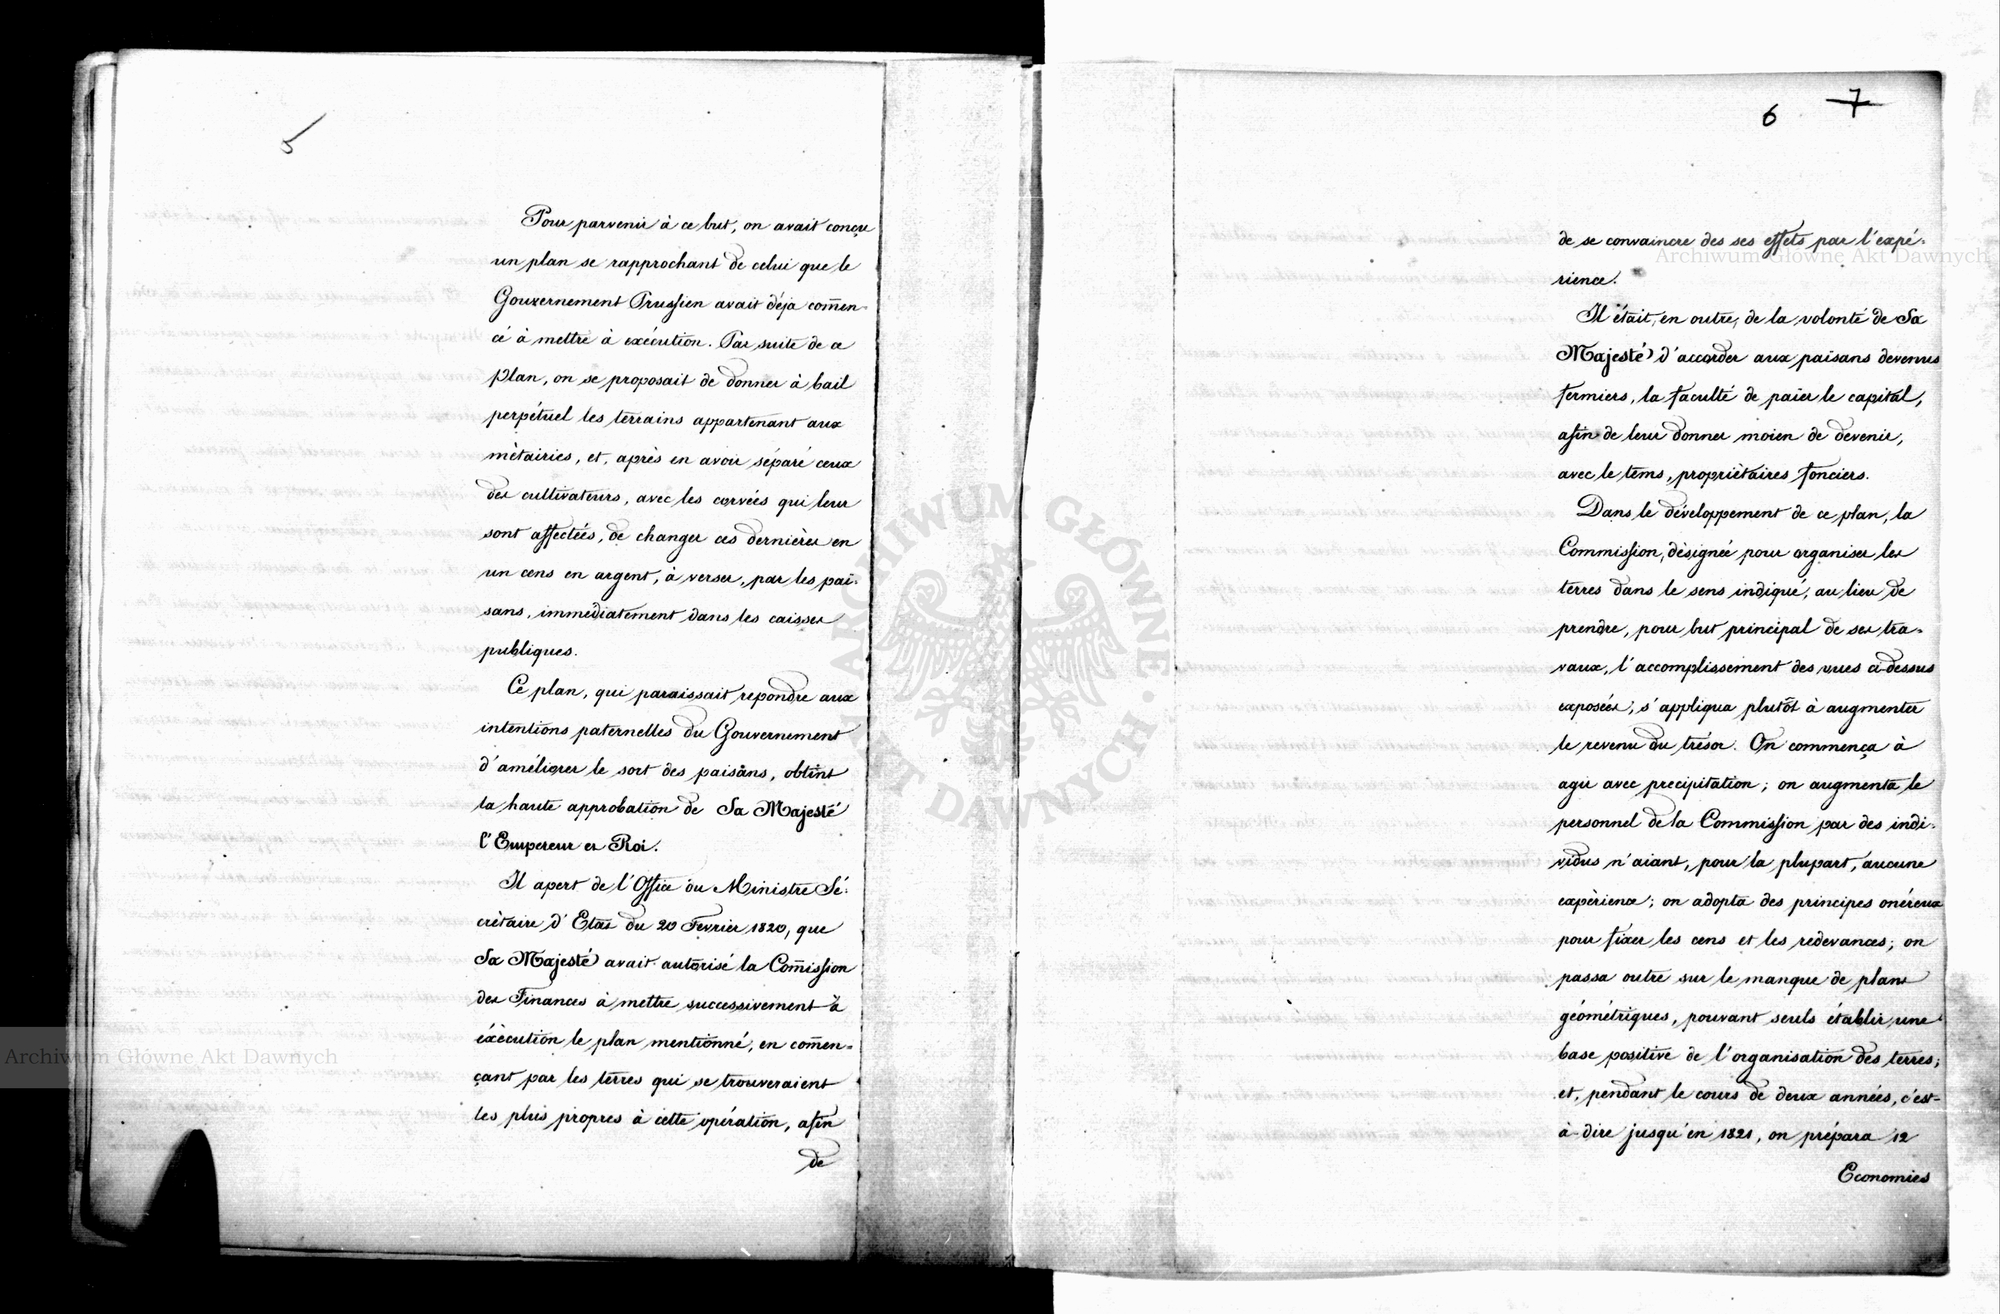 5
Pour parvenir à ce but, on avait conçu
un plan se rapprochant de celui que le
Gouvernement Prussien avait déja com̄en-
cé à mettre à exécution. Par suite de ce
plan, on se proposait de donner à bail
perpétuel les terrains appartenant aux
métairies, et, après en avoir séparé ceux
des cultivateurs, avec les corvées qui leur
sont affectées, de changer ces dernières en
un cens en argent, à verser, par les paï-
sans, immédiatement dans les caisses
publiques.
Ce plan, qui paraissait repondre aux
intentions paternelles du Gouvernement
d'améliorer le sort des paisans, obtint
la haute approbation de Sa Majesté
l'Empereur et Roi.
Il apert de l'Office du Ministre Sé-
crétaire d'Etat du 20 Fevrier 1820, que
Sa Majesté avait autorisé la Com̄ission
des Finances à mettre successivement à
éxécution le plan mentionné, en com̄en-
çant par les terres qui se trouveraient
les plus propres à cette opération, afin
de
6 7
de se convaincre des ses effets par l'expé-
rience.
Il était, en outre, de la volonté de Sa
Majesté d'accorder aux paisans devenus
fermiers, la faculté de païer le capital,
afin de leur donner moien de devenir,
avec le tems, propriétaires fonciers.
Dans le développement de ce plan, la
Commission, désignée pour organiser les
terres dans le sens indiqué, au lieu de
prendre, pour but principal de ses tra-
vaux, l'accomplissement des vues ci-dessus
exposées, s'appliqua plutôt à augmenter
le revenu du trésor. On commença à
agir avec precipitation; on augmenta le
personnel de la Commission par des indi-
vidus n'aiant, pour la plupart, aucune
expérience; on adopta des principes onéreux
pour fixer les cens et les redevances; on
passa outre sur le manque de plans
géométriques, pouvant seuls établir une
base positive de l'organisation des terres;
et, pendant le cours de deux années, c'est-
à-dire jusqu'en 1821, on prépara 12
Economies
ARCHIWUM GŁÓWNE AKT DAWNYCH
Archiwum Główne Akt Dawnych
Archiwum Główne Akt Dawnych